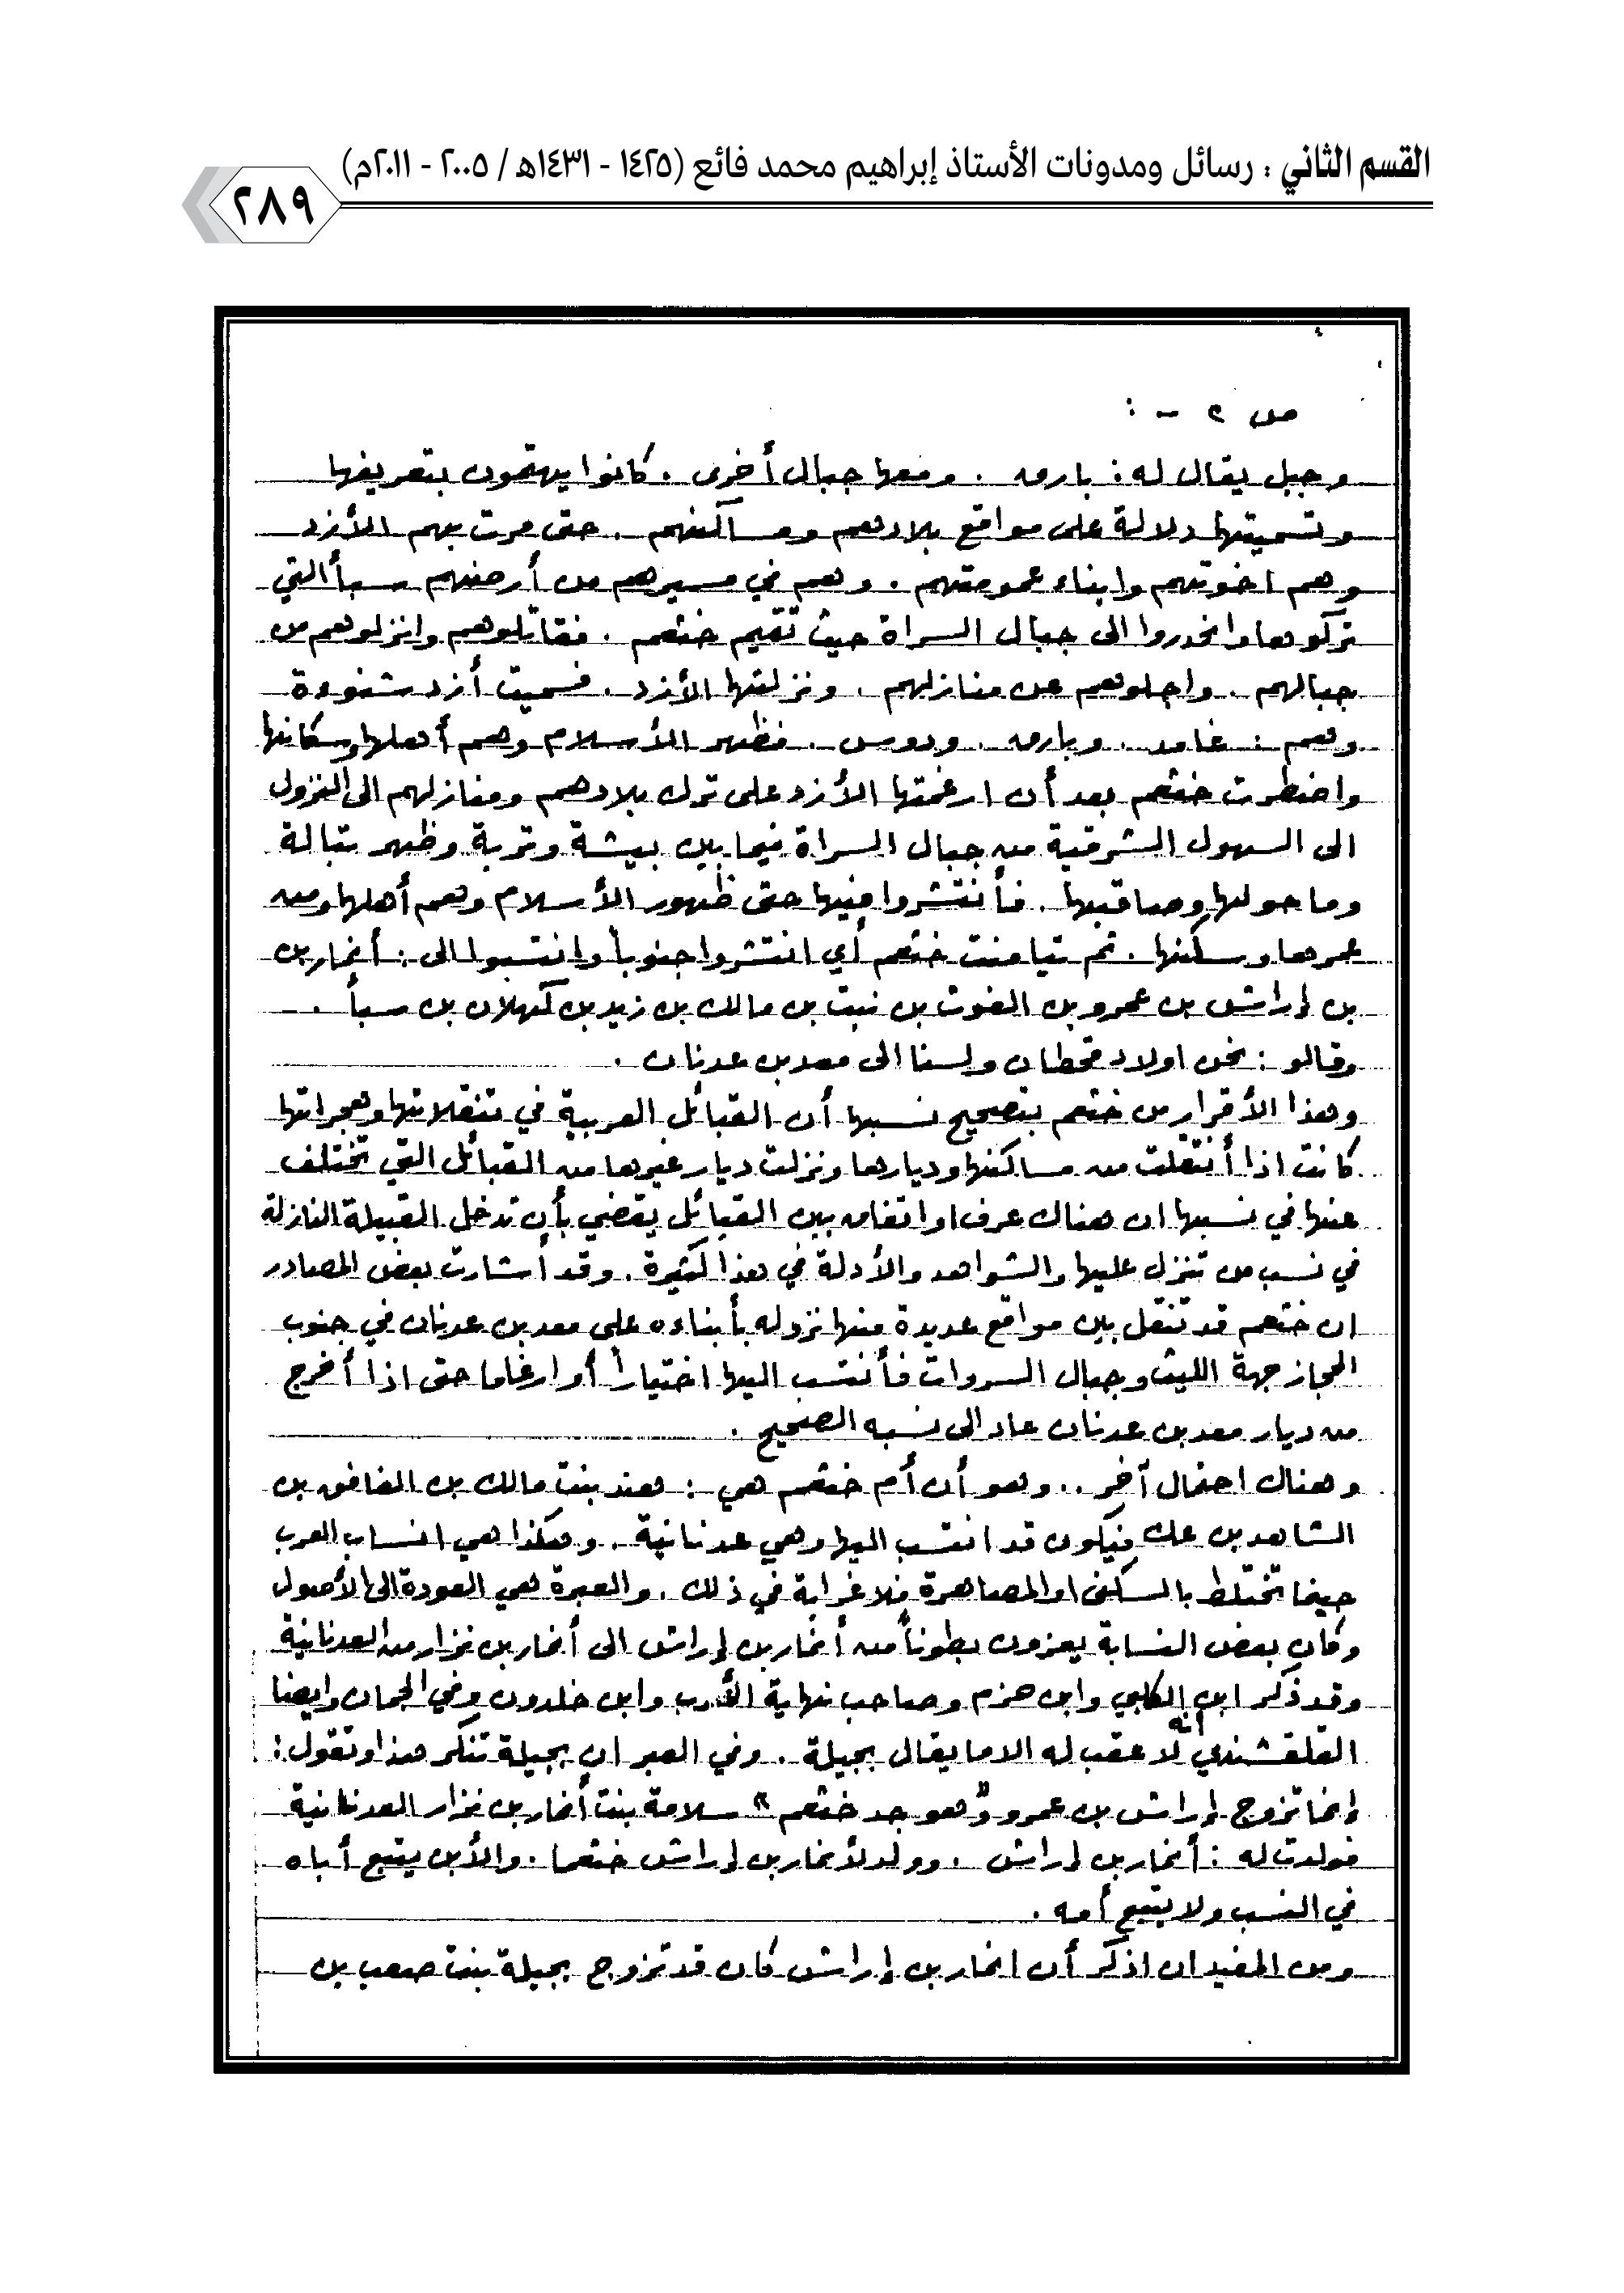 القسم الثاني : رسائل ومدونات الأستاذ إبراهيم محمد فائع (١٤٢٥ - ١٤٣١هـ / ٢٠٠٥ - ٢٠١١م)
٢٨٩
ص ٢ - :
وجبل يقال له : بارق . ومعها جبال أخرى . كانوا يهتمون بتعريفها
وتسميتها دلالة على مواقع بلادهم ومساكنهم . حتى مرت بهم الأزد
وهم اخوتهم وابناء عمومتهم . وهم في مسيرهم من أرضهم سبأ التي
تركوها وانحدروا الى جبال السراة حيث تقيم خثعم . فقاتلوهم وانزلوهم من
جبالهم . واجلوهم عن منازلهم . ونزلتها الأزد . فسميت أزد شنوءة
وهم : غامد . وبارق . ودوس . فظهر الأسلام وهم أهلها وسكانها
واضطرت خثعم بعد أن ارغمتها الأزد على ترك بلادهم ومنازلهم الى النزول
الى السهول الشرقية من جبال السراة فيما بين بيشة وتربة وظهر تبالة
وما حولها وصاقبها . فأنتشروا فيها حتى ظهور الأسلام وهم أهلها ومن
عمرها وسكنها . ثم تيامنت خثعم أي انتشروا جنوباً وانتسبوا الى : أنمار بن
بن إراش بن عمرو بن الغوث بن نبت بن مالك بن زيد بن كهلان بن سبأ .
وقالو : نحن اولاد قحطان ولسنا الى معد بن عدنان .
وهذا الأقرار من خثعم بتصحيح نسبها أن القبائل العربية في تنقلاتها وهجراتها
كانت اذا أنتقلت من مساكنها وديارها ونزلت ديار غيرها من القبائل التي تختلف
عنها في نسبها ان هناك عرف او اتفاق بين القبائل يقضي بأن تدخل القبيلة النازلة
في نسب من تنزل عليها والشواهد والأدلة في هذا كثيرة . وقد أشارت بعض المصادر
ان خثعم قد تنقل بين مواقع عديدة منها نزوله بأبناءه على معد بن عدنان في جنوب
الحجاز جهة الليث وجبال السروات فأنتسب اليها اختياراً أو ارغاما حتى اذا أخرج
من ديار معد بن عدنان عاد الى نسبه الصحيح .
وهناك احتمال آخر .. وهو أن أم خثعم هي : هند بنت مالك بن الغافق بن
الشاهد بن عك فيكون قد انتسب اليها وهي عدنانية . وهكذا هي انساب العرب
حينما تختلط بالسكنى او المصاهرة فلا غرابة في ذلك . والعبرة هي العودة الى الأصول
وكان بعض النسابة يعزون بطوناً من أنمار بن إراش الى أنمار بن نزار من العدنانية
وقد ذكر ابن الكلبي وابن حزم وصاحب نهاية الأرب وابن خلدون وفي الجمان وايضا
القلقشندي انه لا عقب له الا ما يقال بجيلة . وفي العبر ان بجيلة تنكر هذا وتقول :
إنما تزوج إراش بن عمرو " وهو جد خثعم " سلامة بنت أنمار بن نزار العدنانية
فولدت له : أنمار بن إراش . وولد لأنمار بن إراش خثعما . والأبن يتبع أباه
في النسب ولا يتبع أمه .
ومن المفيد ان اذكر أن انمار بن إراش كان قد تزوج بجيلة بنت صعب بن